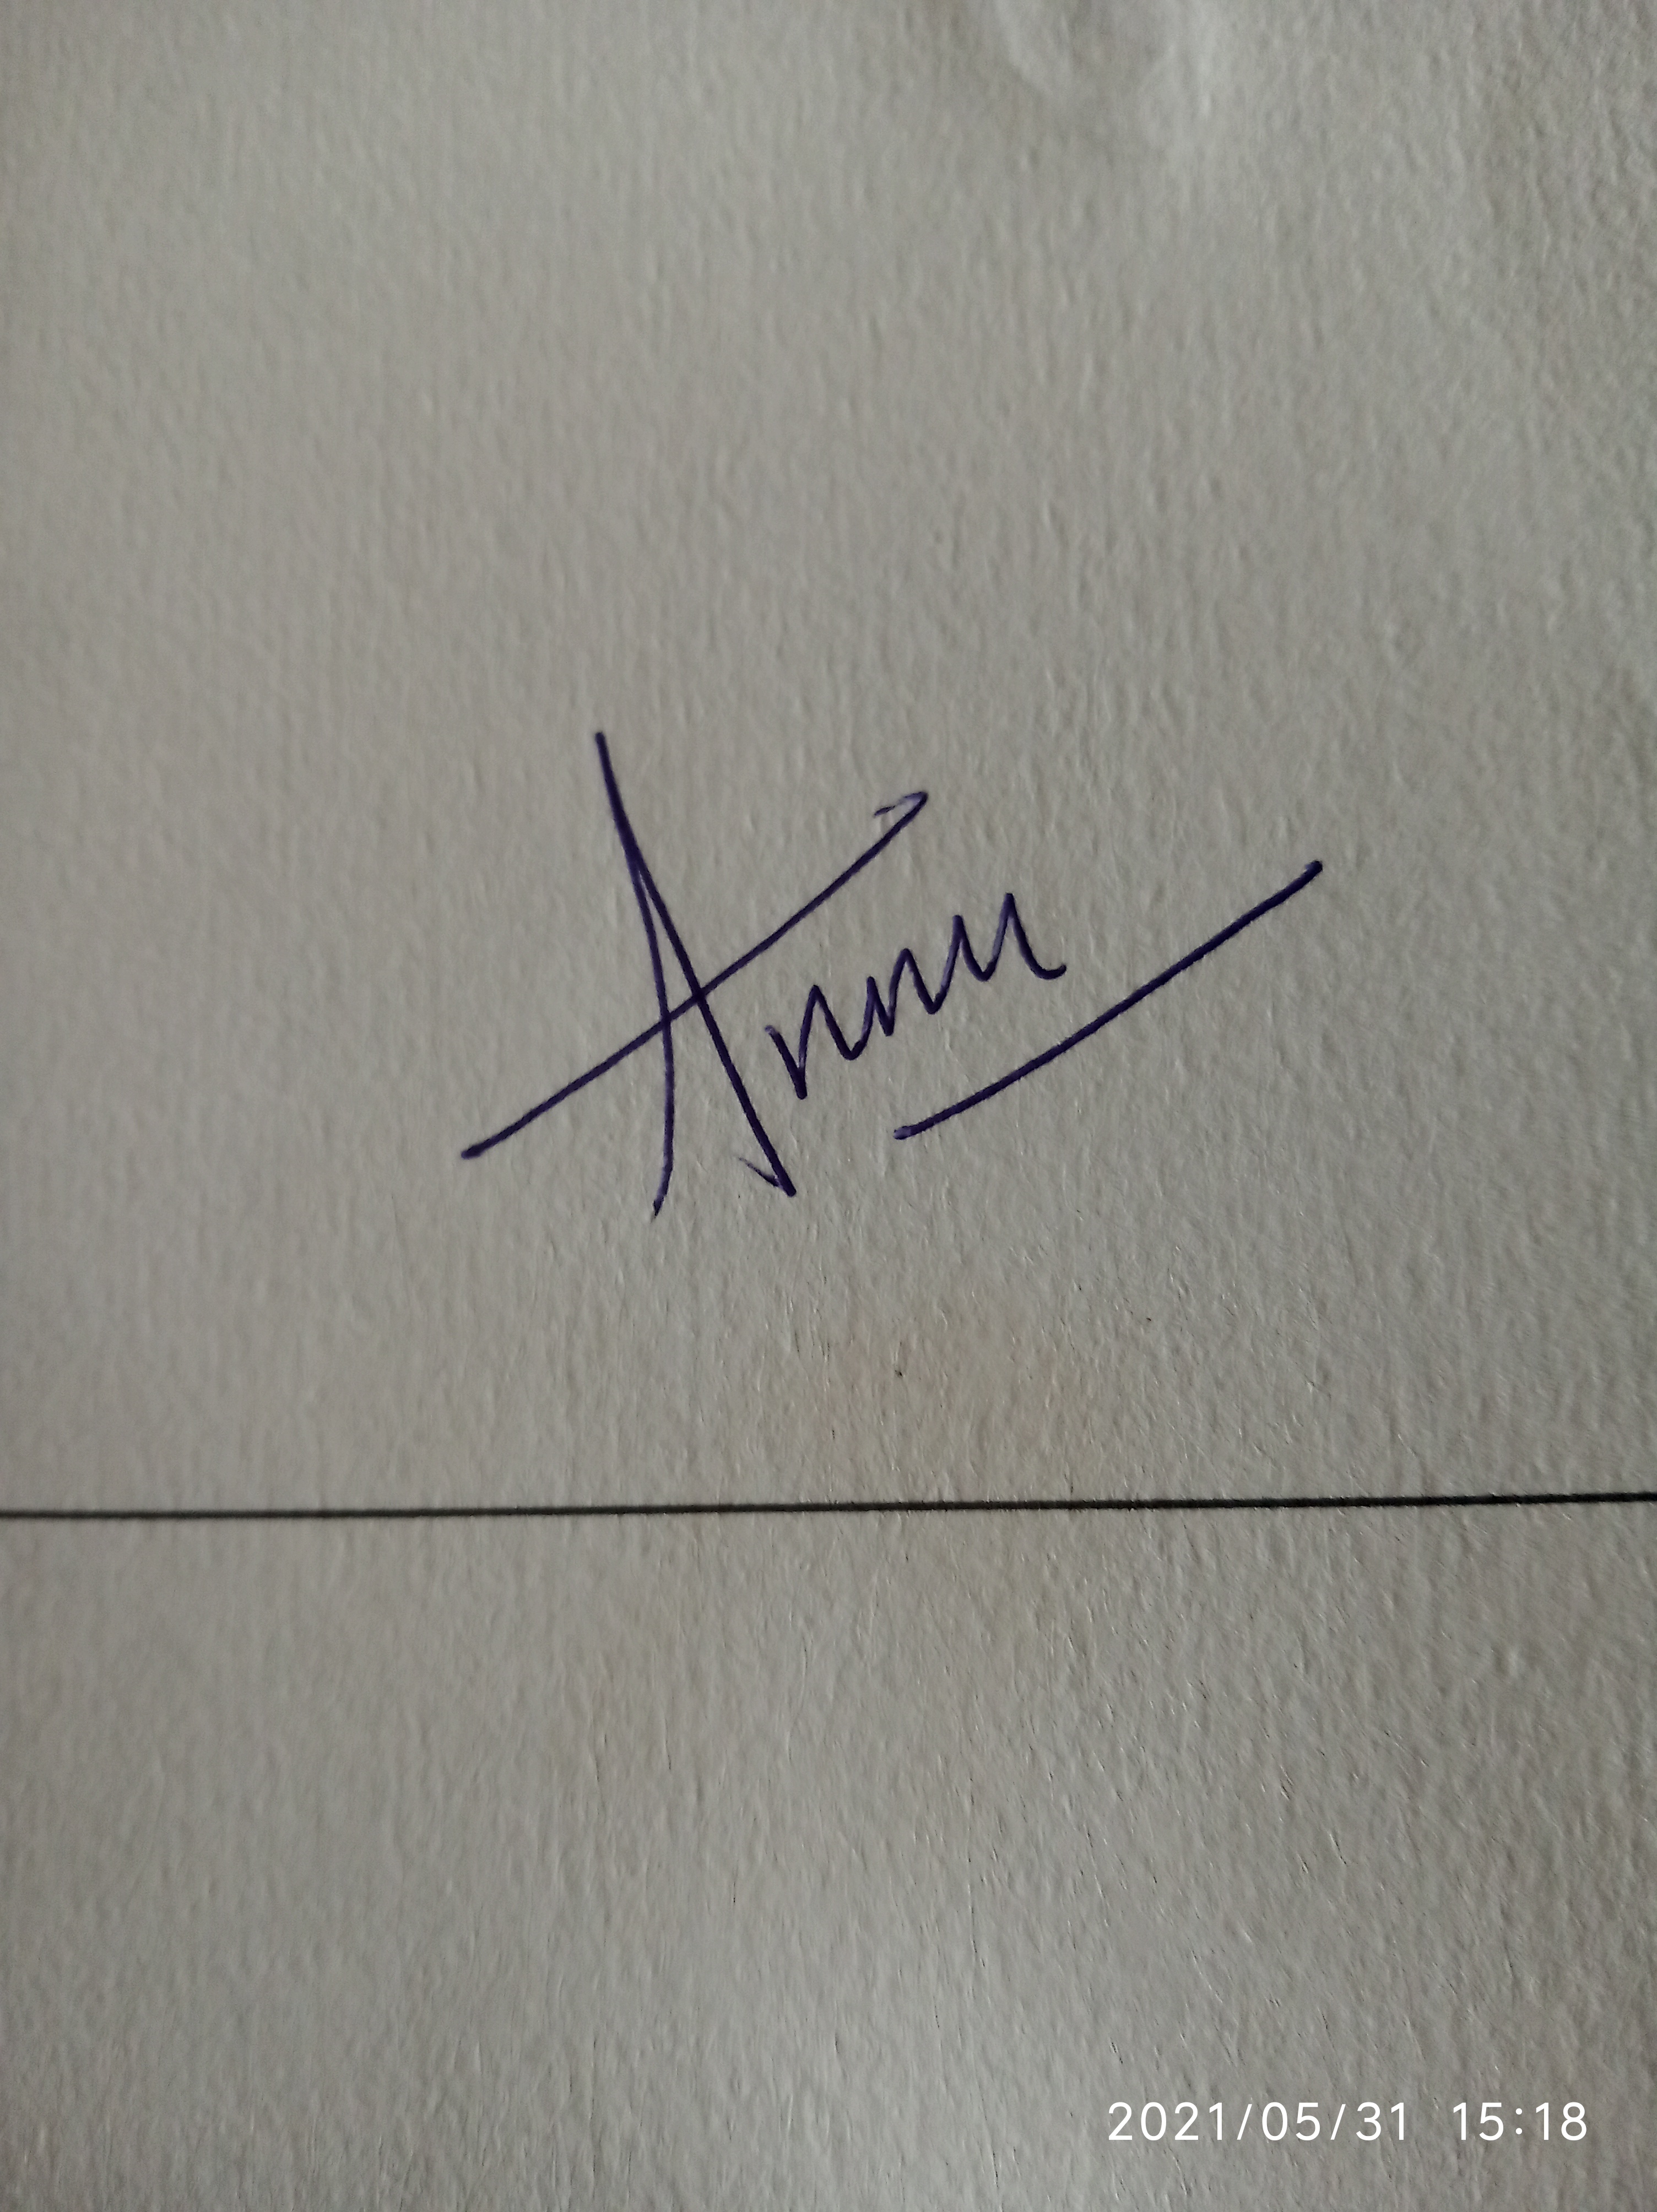 Annu
2021/05/31 15:18